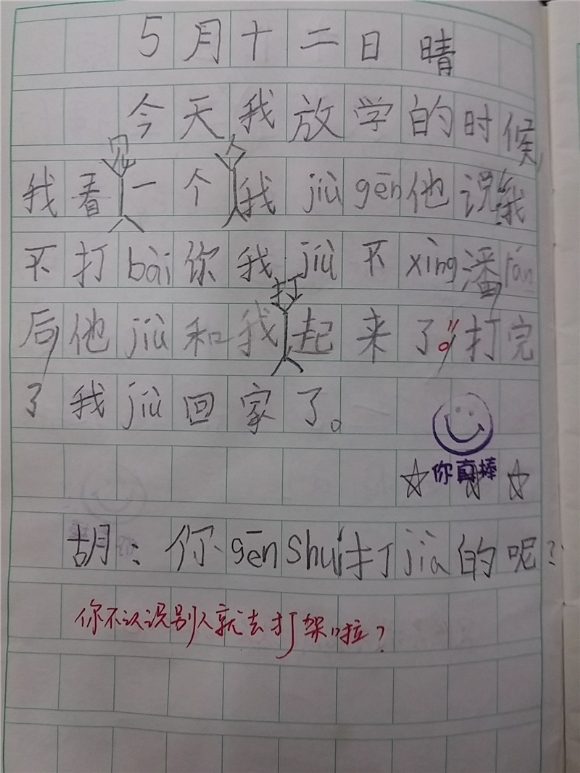 5月十二日 晴
今天我放学的时候,
我看见一个人我jiù gēn他说:“我
不打bài你我jiù不xìng潘”rán
后他jiù和我打起来了。打完
了我jiù回家了。
你真棒
胡：你gēn shuí打jià的呢?
你不认识别人就去打架啦?